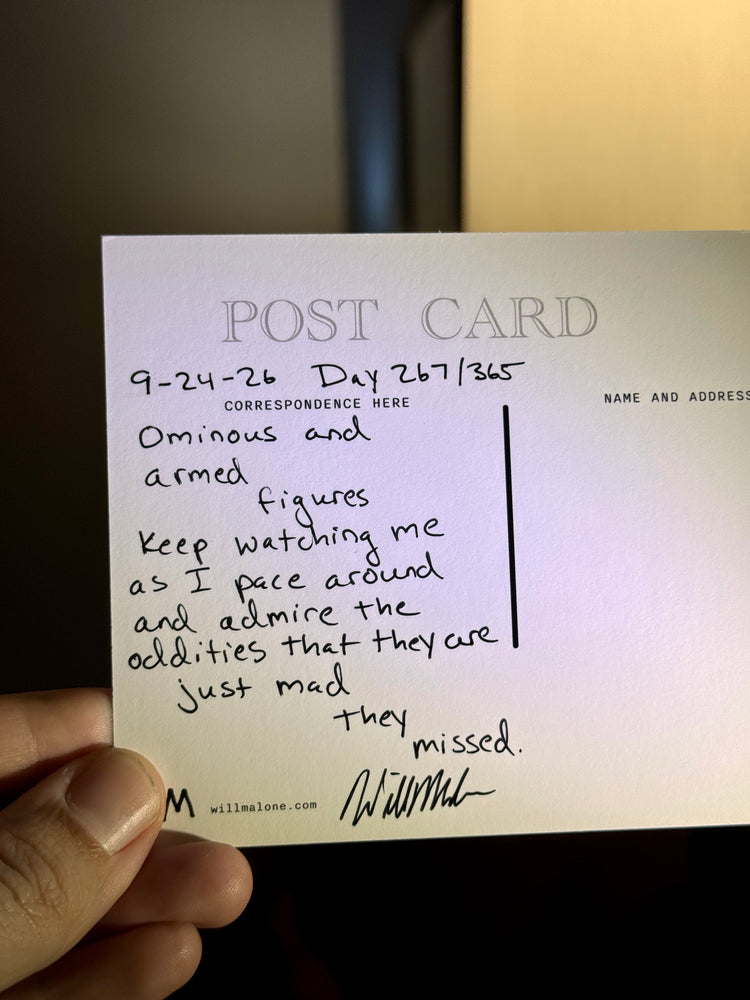 POST CARD
9-24-26 Day 267/365
CORRESPONDENCE HERE
NAME AND ADDRESS
Ominous and
armed
figures
Keep watching me
as I pace around
and admire the
oddities that they are
just mad
they
missed.
M willmalone.com